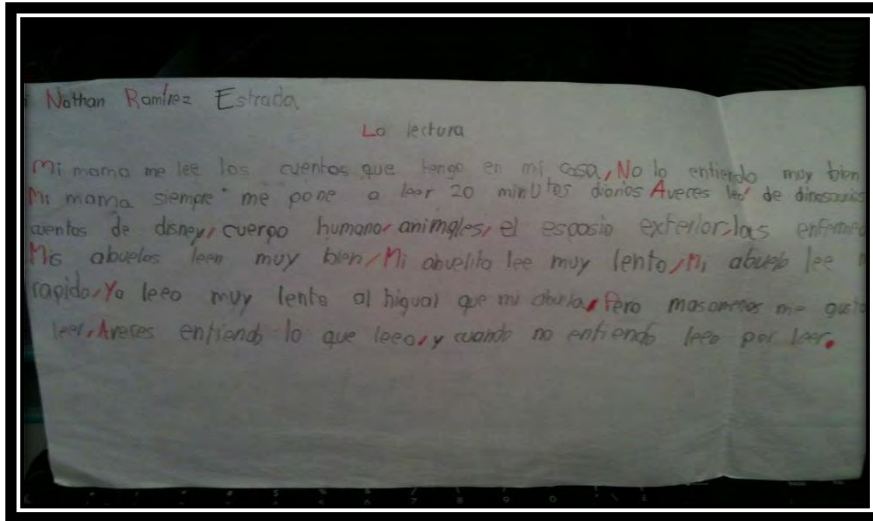 Nathan Ramírez Estrada
La lectura
Mi mama me lee los cuentos que tengo en mi casa, No lo entiendo muy bien
Mi mama siempre me pone a leer 20 minutos diarios Averes leo de dinosaurios
cuentos de disney, cuerpo humano, animales, el espasio exterior, las enfermed
Mis abuelos leen muy bien, Mi abuelito lee muy lento, Mi abuelo lee
rapido, Yo leeo muy lento al higual que mi abuela, Pero masomenos me gusta
leer, Averes entiendo lo que leeo, y cuando no entiendo leeo por leer.